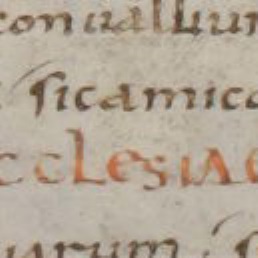 conuallium
sicamica
ecclesiae
uarum · s